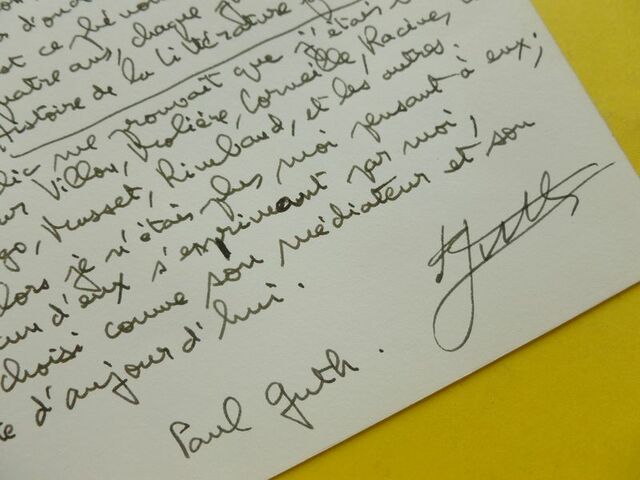 est ce
quatre ans, chaque
Histoire de la Littérature
me prouvait que j'étais
Villon, Molière, Corneille, Racine,
go, Musset, Rimbaud, et les autres.
lors je n'étais plus moi pensant à eux,
d'eux s'exprimant par moi,
choisi comme son médiateur et son
d'aujourd'hui.
Paul Guth.